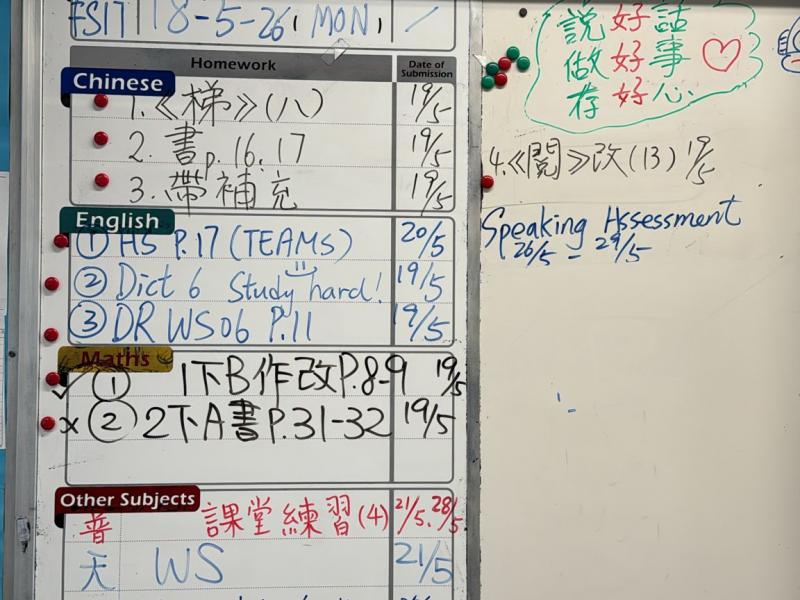 FS17 18-5-26, MON,
Homework
Date of Submission
Chinese
1.《梯》(八) 19/5
2. 書p.16.17 19/5
3. 帶補充 19/5
English
① HS P.17 (TEAMS) 20/5
② Dict 6 Study hard! 19/5
③ DR WS06 P.11 19/5
Maths
✓ ① 1下B作改P.8-9 19/5
x ② 2下A書P.31-32 19/5
Other Subjects
普 課堂練習(4) 21/5.28/5.
天 WS 21/5
說好話
做好事
存好心
4.《閱》改(13) 19/5
Speaking Assessment
26/5 - 29/5